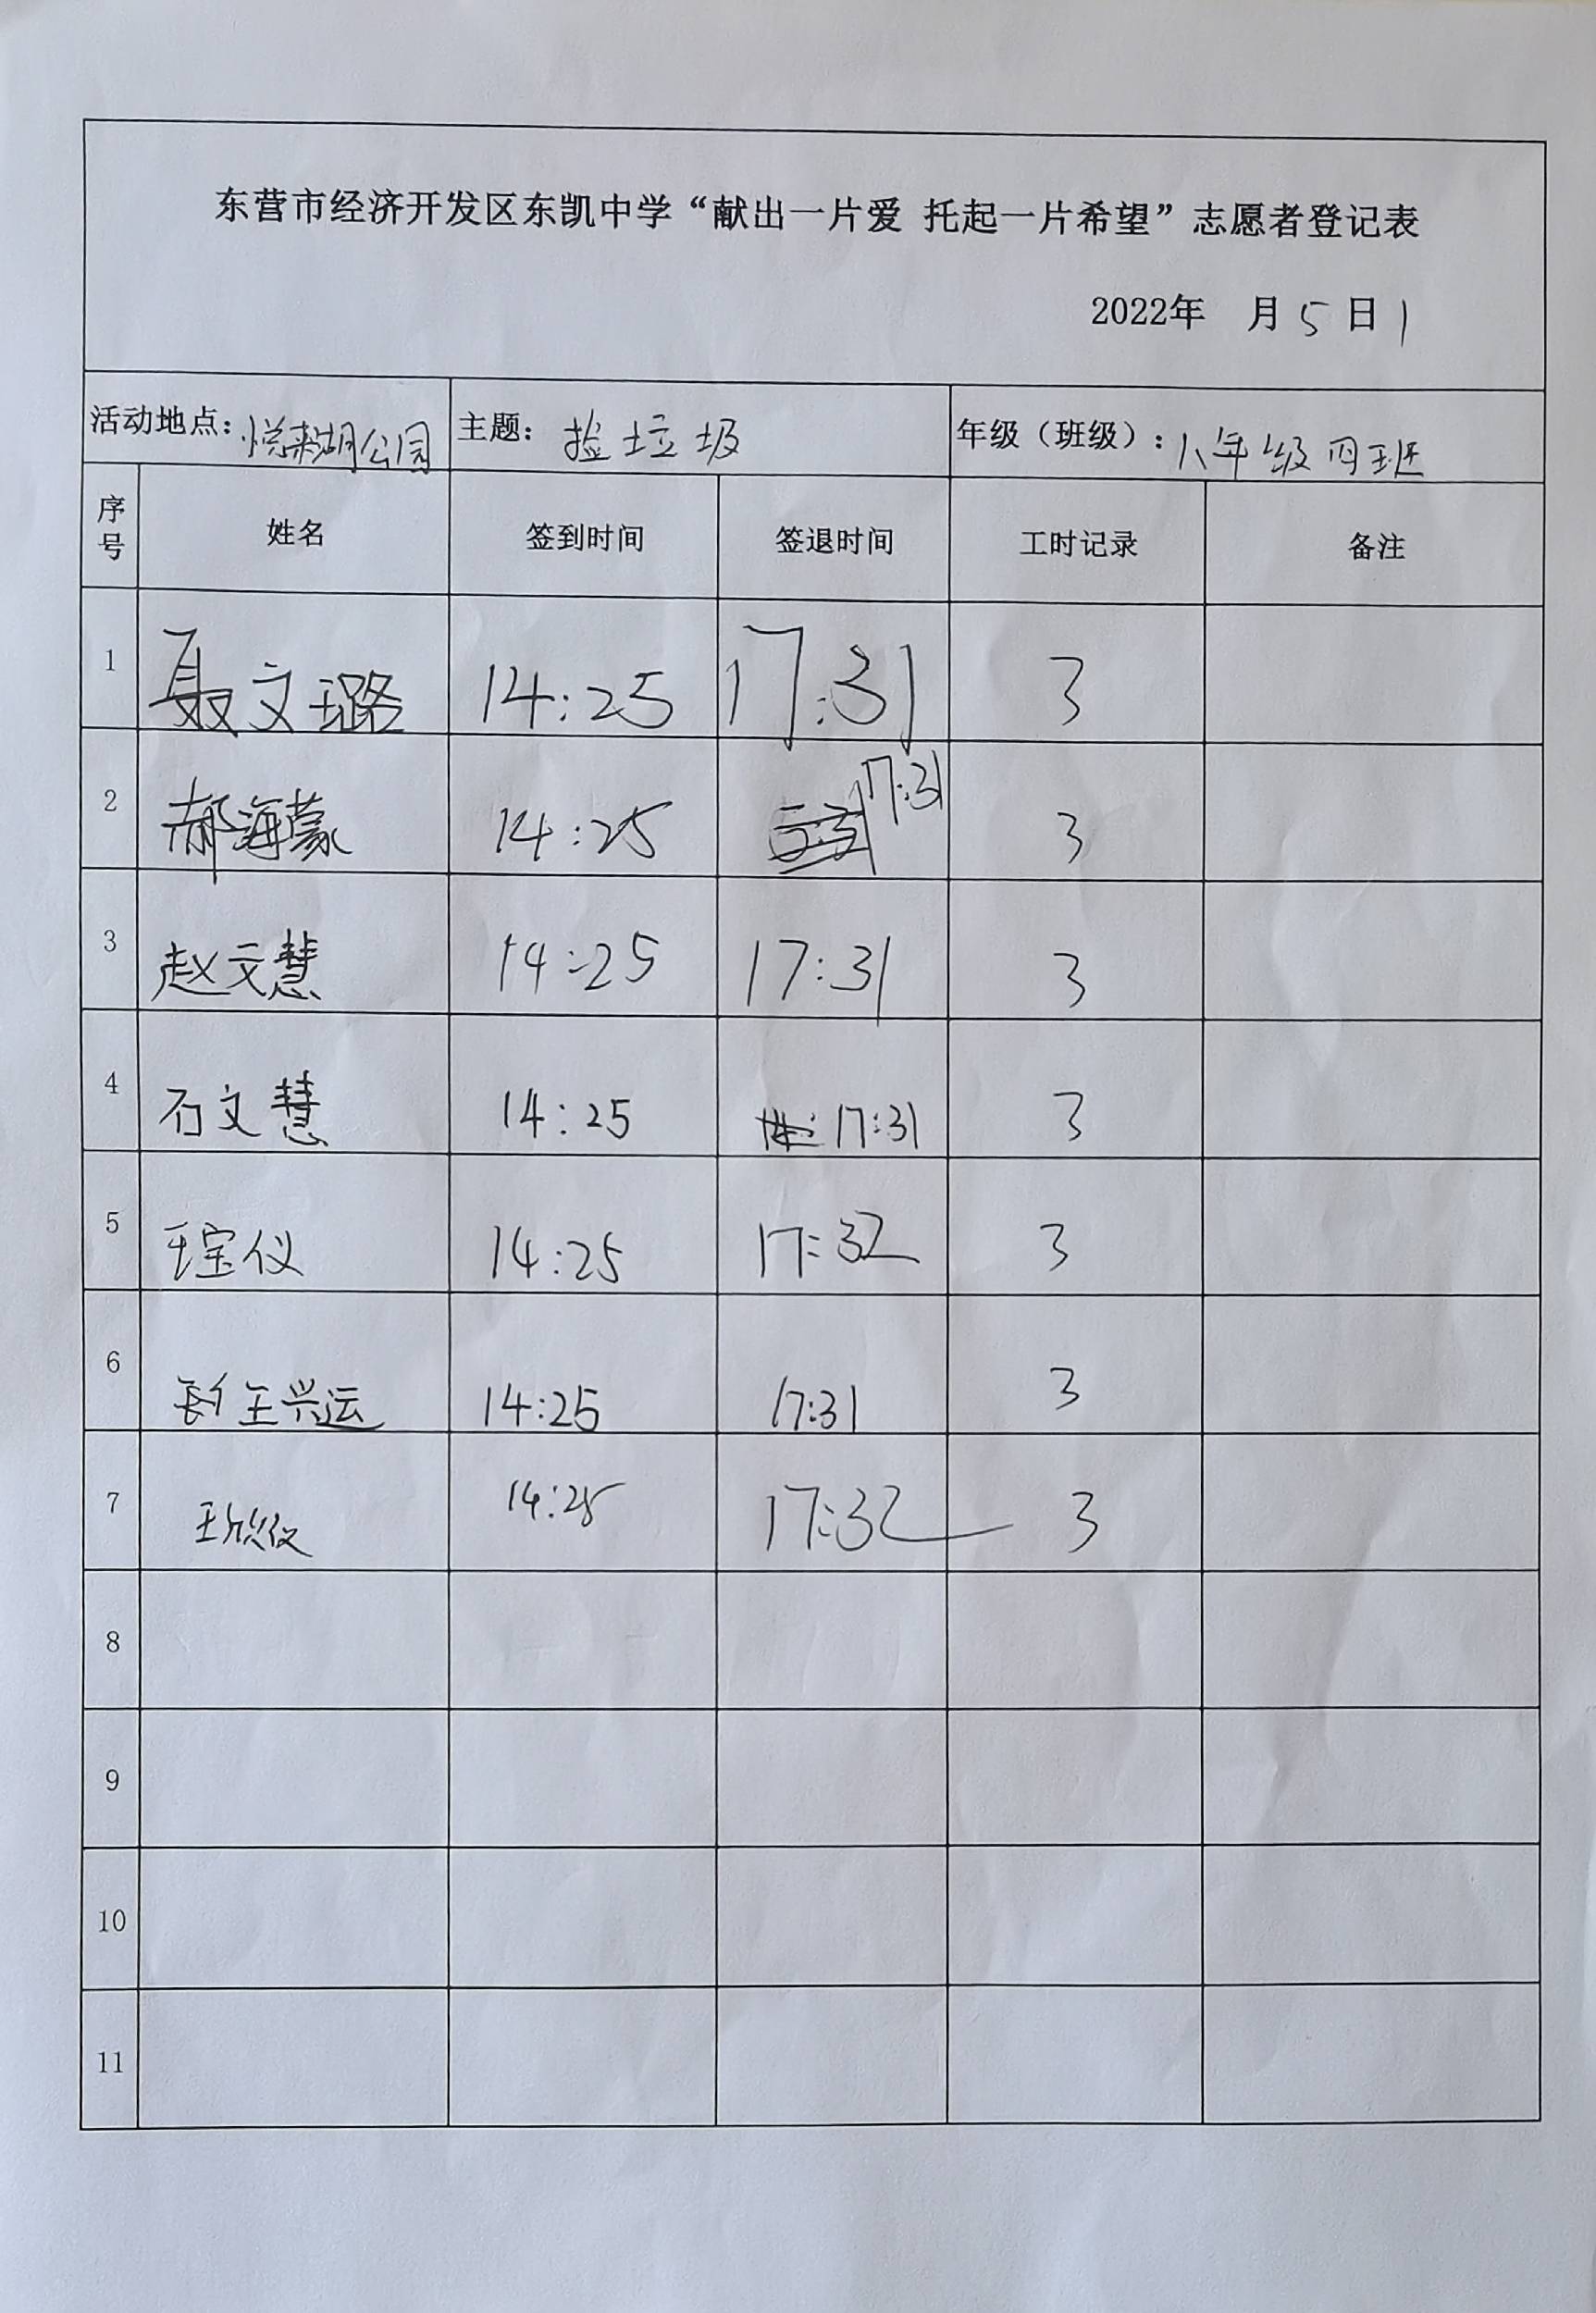 东营市经济开发区东凯中学“献出一片爱 托起一片希望”志愿者登记表
2022年 月5日1
活动地点：悦来湖公园 主题：捡垃圾 年级（班级）：八年级四班
序号 姓名 签到时间 签退时间 工时记录 备注
1 聂文璐 14:25 17:31 3
2 郝海蒙 14:25 17:31 3
3 赵文慧 14:25 17:31 3
4 石文慧 14:25 17:31 3
5 王宝仪 14:25 17:32 3
6 王兴运 14:25 17:31 3
7 王欣仪 14:25 17:32 3
8
9
10
11